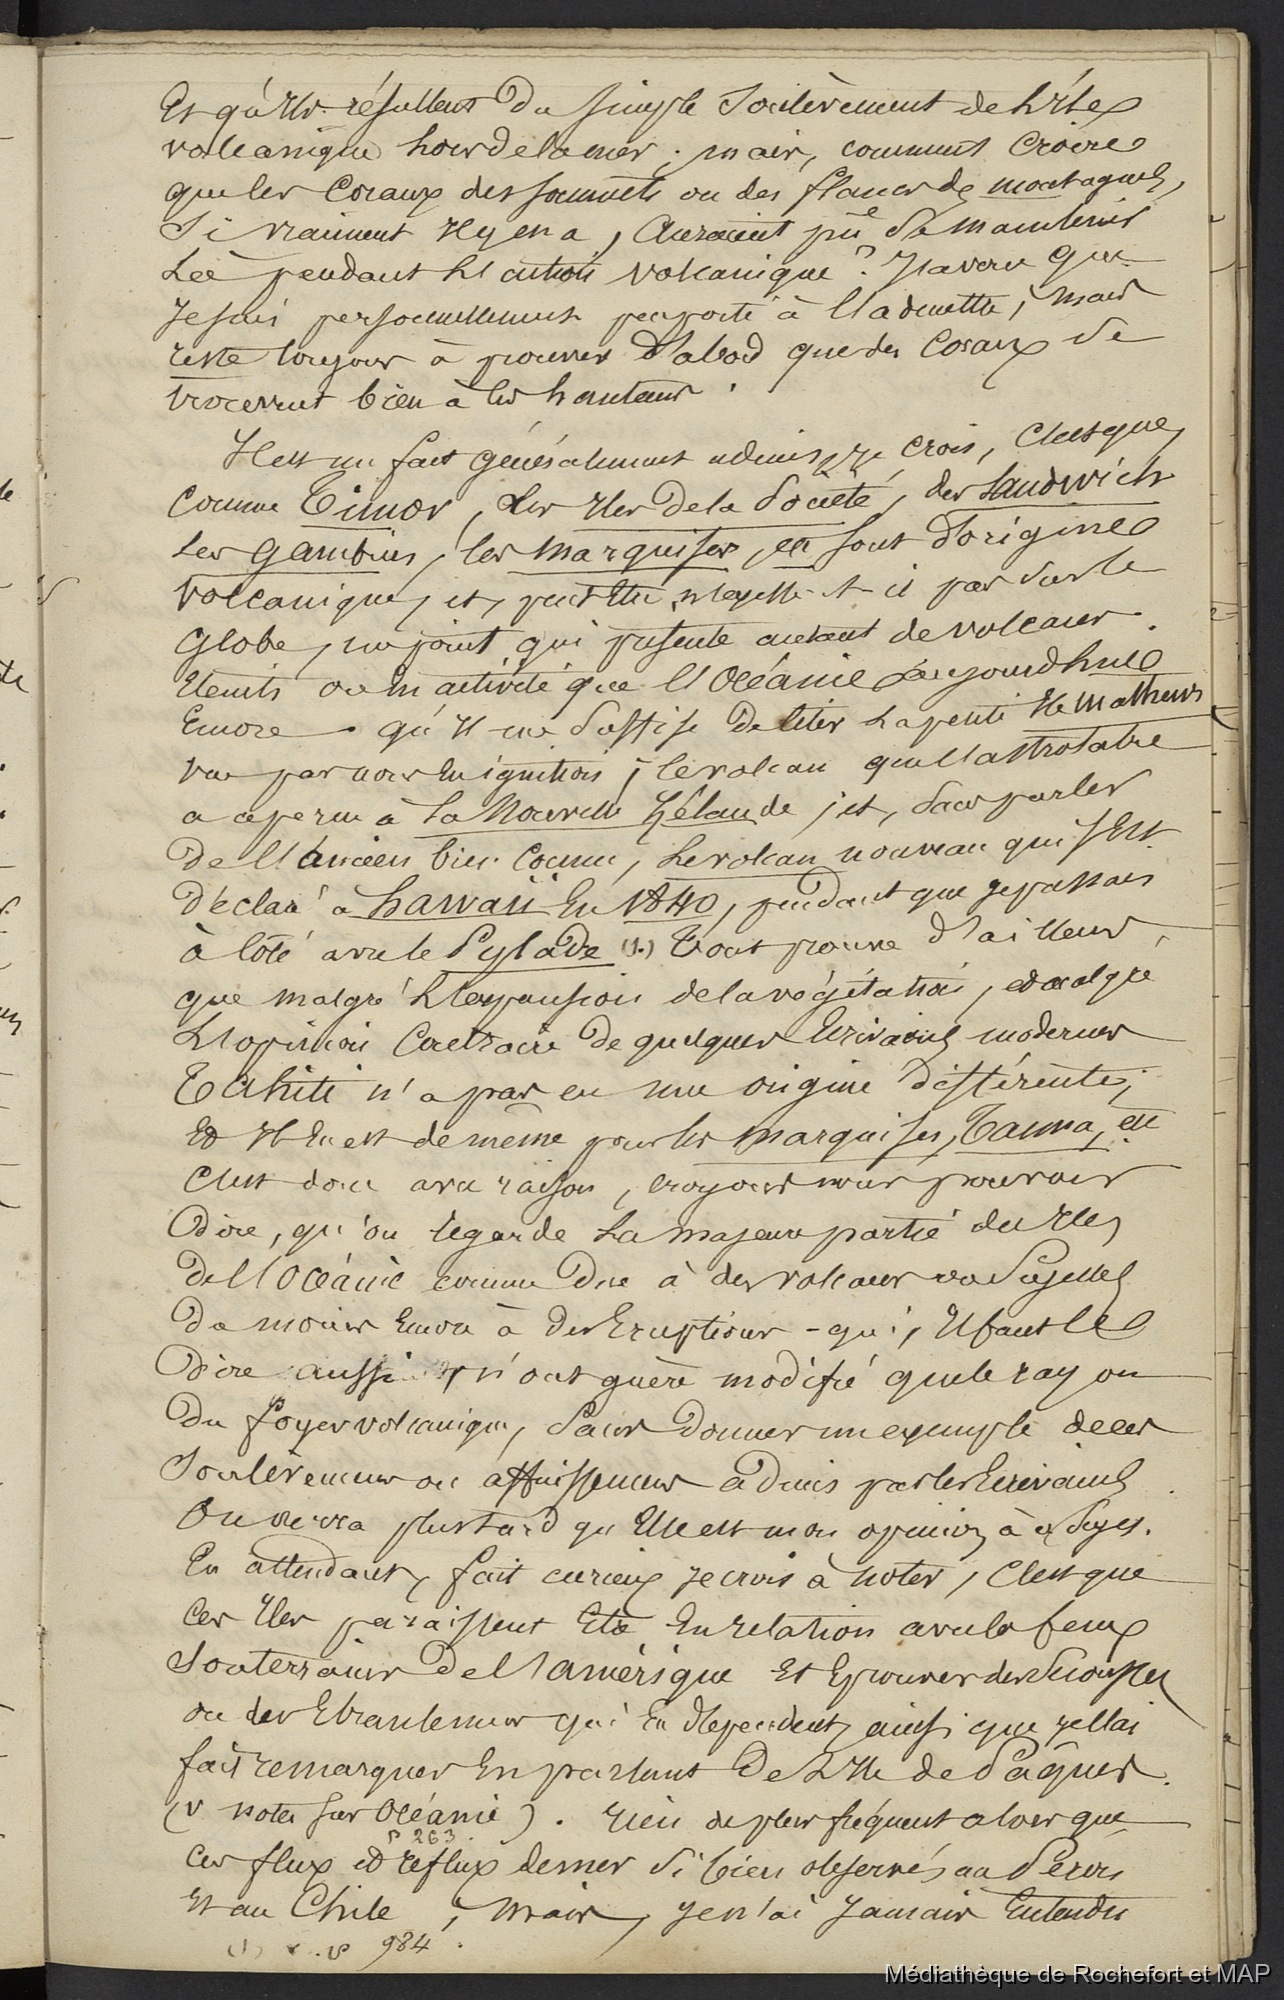 Et qu'ils résultent du simple soulèvement de l'ile
volcanique hors de la mer ; mais, comment croire
que les coraux des sommets ou des flancs de montagnes,
si vraiment il y en a, auraient pu se maintenir
là pendant l'action volcanique ? J'avoue que
je suis personnellement peu porté à l'admettre ; mais
reste toujours à prouver d'abord que des coraux se
trouvent bien à ces hauteurs.
Il est un fait généralement admis, je crois, c'est que,
comme Timor, les iles de la Société, des Sandwich
les Gambier, les Marquises, etc sont d'origine
volcanique, et, peut être, n'existe-t-il pas sur le
globe, un point qui présente autant de volcans
éteints ou en activité que l'Océanie aujourd'hui
encore. qu'il me suffise de citer la petite ile Mathews
vue par nous en ignition ; le volcan que l'Astrolabe
a aperçu à la Nouvelle Zélande ; et, sans parler
de l'ancien bien connu, le volcan nouveau qui s'est
déclaré à Hawaii en 1840, pendant que je passais
à côté avec le Pylade (1.) Tout prouve d'ailleurs,
que malgré l'expansion de la végétation, et malgré
l'opinion contraire de quelques écrivains modernes
Tahiti n'a pas eu une origine différente ;
et il en est de même pour les Marquises, Tanna, etc
C'est donc avec raison, croyons nous pouvoir
dire, qu'on regarde la majeure partie des iles
de l'Océanie comme due à des volcans ou sujettes
du moins encore à des éruptions - qui, il faut le
dire aussi n'ont guère modifié que le rayon
du foyer volcanique, sans donner un exemple de ces
soulèvemens ou affaissemens admis par les écrivains
On verra plus tard quelle est mon opinion à ce sujet.
En attendant, fait curieux je crois à noter, c'est que
ces iles paraissent être en relation avec les feux
souterrains de l'Amérique et éprouver des secousses
ou des ébranlemens qui en dépendent, ainsi que je l'ai
fait remarquer en parlant de l'ile de Pâques.
(v notes sur Océanie). rien de plus fréquent alors que
p 263.
ces flux et reflux de mer si bien observés au Pérou
et au Chile ; mais, je n'ai jamais entendu
(1) v. p 984.
Médiathèque de Rochefort et MAP